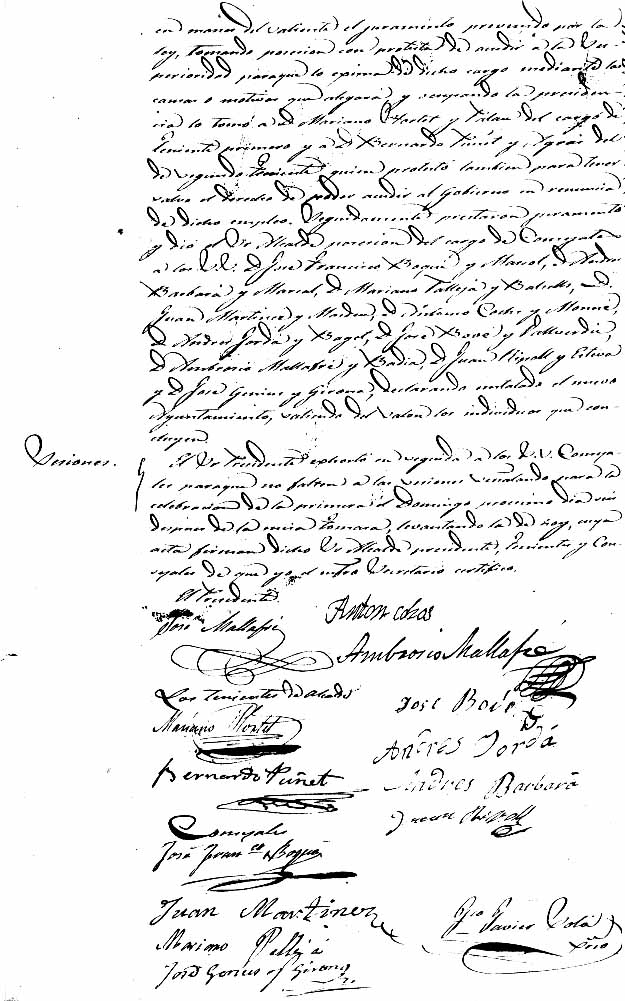 en manos del saliente el juramento prevenido por la
ley, tomando posesion con protesta de acudir á la Su-
perioridad paraque lo exima de dicho cargo mediante las
causas o motivos que alegará y ocupando la presiden-
cia lo tomó a D. Mariano y del cargo de
Teniente primero y a D. Bernardo Puñet y del
de segundo Teniente quien protestó tambien para tener
salvo el derecho de poder acudir al Gobierno en renuncia
de dicho empleo. Seguidamente prestaron juramento
y dió el Sr Alcalde posesion del cargo de Concejales
a los S.S. D. José Francisco Boqué y Marsal, D. Andres
Barbará y Marsal, D. Mariano Pallejá y D.
Juan Martinez y D. y
D. Andres Jordá y D. José Bové y
D. Ambrosio Mallafré y Badia, D. Juan Ripoll y Esteva
y D. José Genius y Girona, declarando instalado el nuevo
Ayuntamiento, saliendo del salon los individuos que con-
cluyen.
Sesiones.
El Sr Presidente exhortó en seguida a los S.S. Conceja-
les paraque no falten a las sesiones señalando para la
celebracion de la primera el Domingo procsimo dia seis
despues de la misa Tomara, levantando la de hoy, cuya
acta firman dicho Sr Alcalde presidente, Tenientes y Con-
cejales de que yo el infro Secretario certifico.
El Presidente
José Mallafré
Anton
Ambrosio Mallafré
Los tenientes de alcalde
José Bové
Mariano
Andres Jordá
Bernardo Puñet
Andres Barbará
Juan Ripoll
Concejales
José Franco Boqué
Juan Martinez
Mariano Pallejá
José Genius y Girona
Javier Solá
Srio